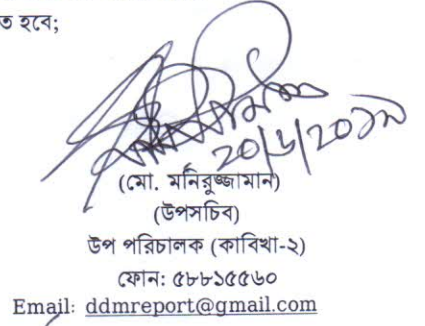 ত হবে;
২০/৬/২০১৯
(মো. মনিরুজ্জামান)
(উপসচিব)
উপ পরিচালক (কাবিখা-২)
ফোন: ৫৮৮১৫৫৬০
Email: ddmreport@gmail.com